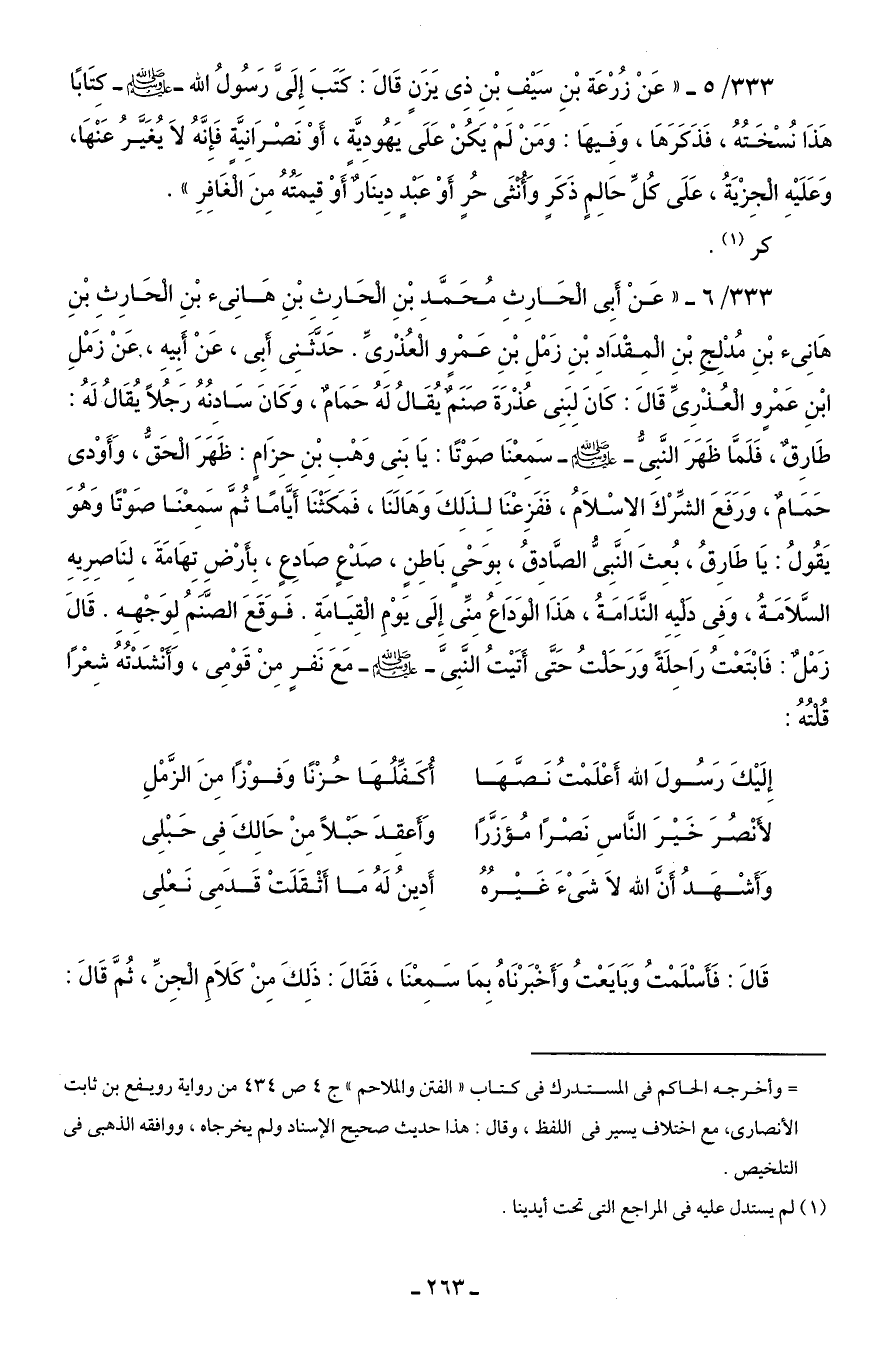 ٣٣٣/ ٥ ـ « عَنْ زُرْعَةَ بْنِ سَيْفِ بْنِ ذِى يَزَنٍ قَالَ : كَتَبَ إِلَىَّ رَسُولُ الله ـ ﷺ ـ كِتَابًا
هَذَا نُسْخَتُهُ ، فَذَكَرَهَا ، وَفِيهَا : وَمَنْ لَمْ يَكُنْ عَلَى يَهُودِيَّةٍ ، أَوْ نَصْرَانِيَّةٍ فَإِنَّهُ لاَ يُغَيَّرُ عَنْهَا،
وَعَلَيْهِ الْجِزْيَةُ ، عَلَى كُلِّ حَالِمٍ ذَكَرٍ وَأُنْثَى حُرٍ أَوْ عَبْدٍ دِينَارٌ أَوْ قِيمَتُهُ مِنَ الْغَافِرِ » .
كر (١) .
٣٣٣/ ٦ ـ « عَنْ أَبِى الْحَارِثِ مُحَمَّدِ بْنِ الْحَارِثِ بْنِ هَانِىء بْنِ الْحَارِثِ بْنِ
هَانِىء بْنِ مُدْلِجِ بْنِ الْمِقْدَادِ بْنِ زَمْلِ بْنِ عَمْرِو الْعُذْرِىِّ . حَدَّثَنِى أَبِى ، عَنْ أَبِيهِ ، عَنْ زَمْلِ
ابْنِ عَمْرِو الْعُذْرِىِّ قَالَ : كَانَ لِبَنِى عُذْرَةَ صَنَمٌ يُقَالُ لَهُ حَمَامٌ ، وَكَانَ سَادِنُهُ رَجُلاً يُقَالُ لَهُ :
طَارِقٌ ، فَلَمَّا ظَهَرَ النَّبِىُّ ـ ﷺ ـ سَمِعْنَا صَوْتًا : يَا بَنِى وَهْبِ بْنِ حِزَامٍ : ظَهَرَ الْحَقُّ ، وَأَوْدَى
حَمَامٌ ، وَرَفَعَ الشِّرْكَ الإِسْلاَمُ ، فَفَزِعْنَا لِذَلِكَ وَهَالَنَا ، فَمَكَثْنَا أَيَّامًا ثُمَّ سَمِعْنَا صَوْتًا وَهُوَ
يَقُولُ : يَا طَارِقُ ، بُعِثَ النَّبِىُّ الصَّادِقُ ، بِوَحْىٍ بَاطِنٍ ، صَدْعٍ صَادِعٍ ، بِأَرْضِ تِهَامَةَ ، لِنَاصِرِيهِ
السَّلاَمَةُ ، وَفِى دَلْيِهِ النَّدَامَةُ ، هَذَا الْوَدَاعُ مِنِّى إِلَى يَوْمِ الْقِيَامَةِ . فَوَقَعَ الصَّنَمُ لِوَجْهِهِ . قَالَ
زَمْلٌ : فَابْتَعْتُ رَاحِلَةً وَرَحَلْتُ حَتَّى أَتَيْتُ النَّبِىَّ ـ ﷺ ـ مَعَ نَفَرٍ مِنْ قَوْمِى ، وَأَنْشَدْتُهُ شِعْرًا
قُلْتُهُ :
إِلَيْكَ رَسُولَ الله أَعْلَمْتُ نَصَّهَا    أُكَفِّلُهَا حُزْنًا وَفَوْزًا مِنَ الزَّمْلِ
لأَنْصُرَ خَيْرَ النَّاسِ نَصْرًا مُؤَزَّرًا    وَأَعقِدَ حَبْلاً مِنْ حَالِكَ فِى حَبْلِى
وَأَشْهَدُ أَنَّ الله لاَ شَىْءَ غَيْرُهُ    أَدِينُ لَهُ مَا أَثْقَلَتْ قَدَمِى نَعْلِى
قَالَ : فَأَسْلَمْتُ وَبَايَعْتُ وَأَخْبَرْنَاهُ بِمَا سَمِعْنَا ، فَقَالَ : ذَلِكَ مِنْ كَلاَمِ الْجِنِّ ، ثُمَّ قَالَ :
= وأخرجه الحاكم فى المستدرك فى كتاب « الفتن والملاحم » ج ٤ ص ٤٣٤ من رواية رويفع بن ثابت
الأنصارى، مع اختلاف يسير فى اللفظ ، وقال : هذا حديث صحيح الإسناد ولم يخرجاه ، ووافقه الذهبى فى
التلخيص .
(١) لم يستدل عليه فى المراجع التى تحت أيدينا .
ـ ٢٦٣ ـ